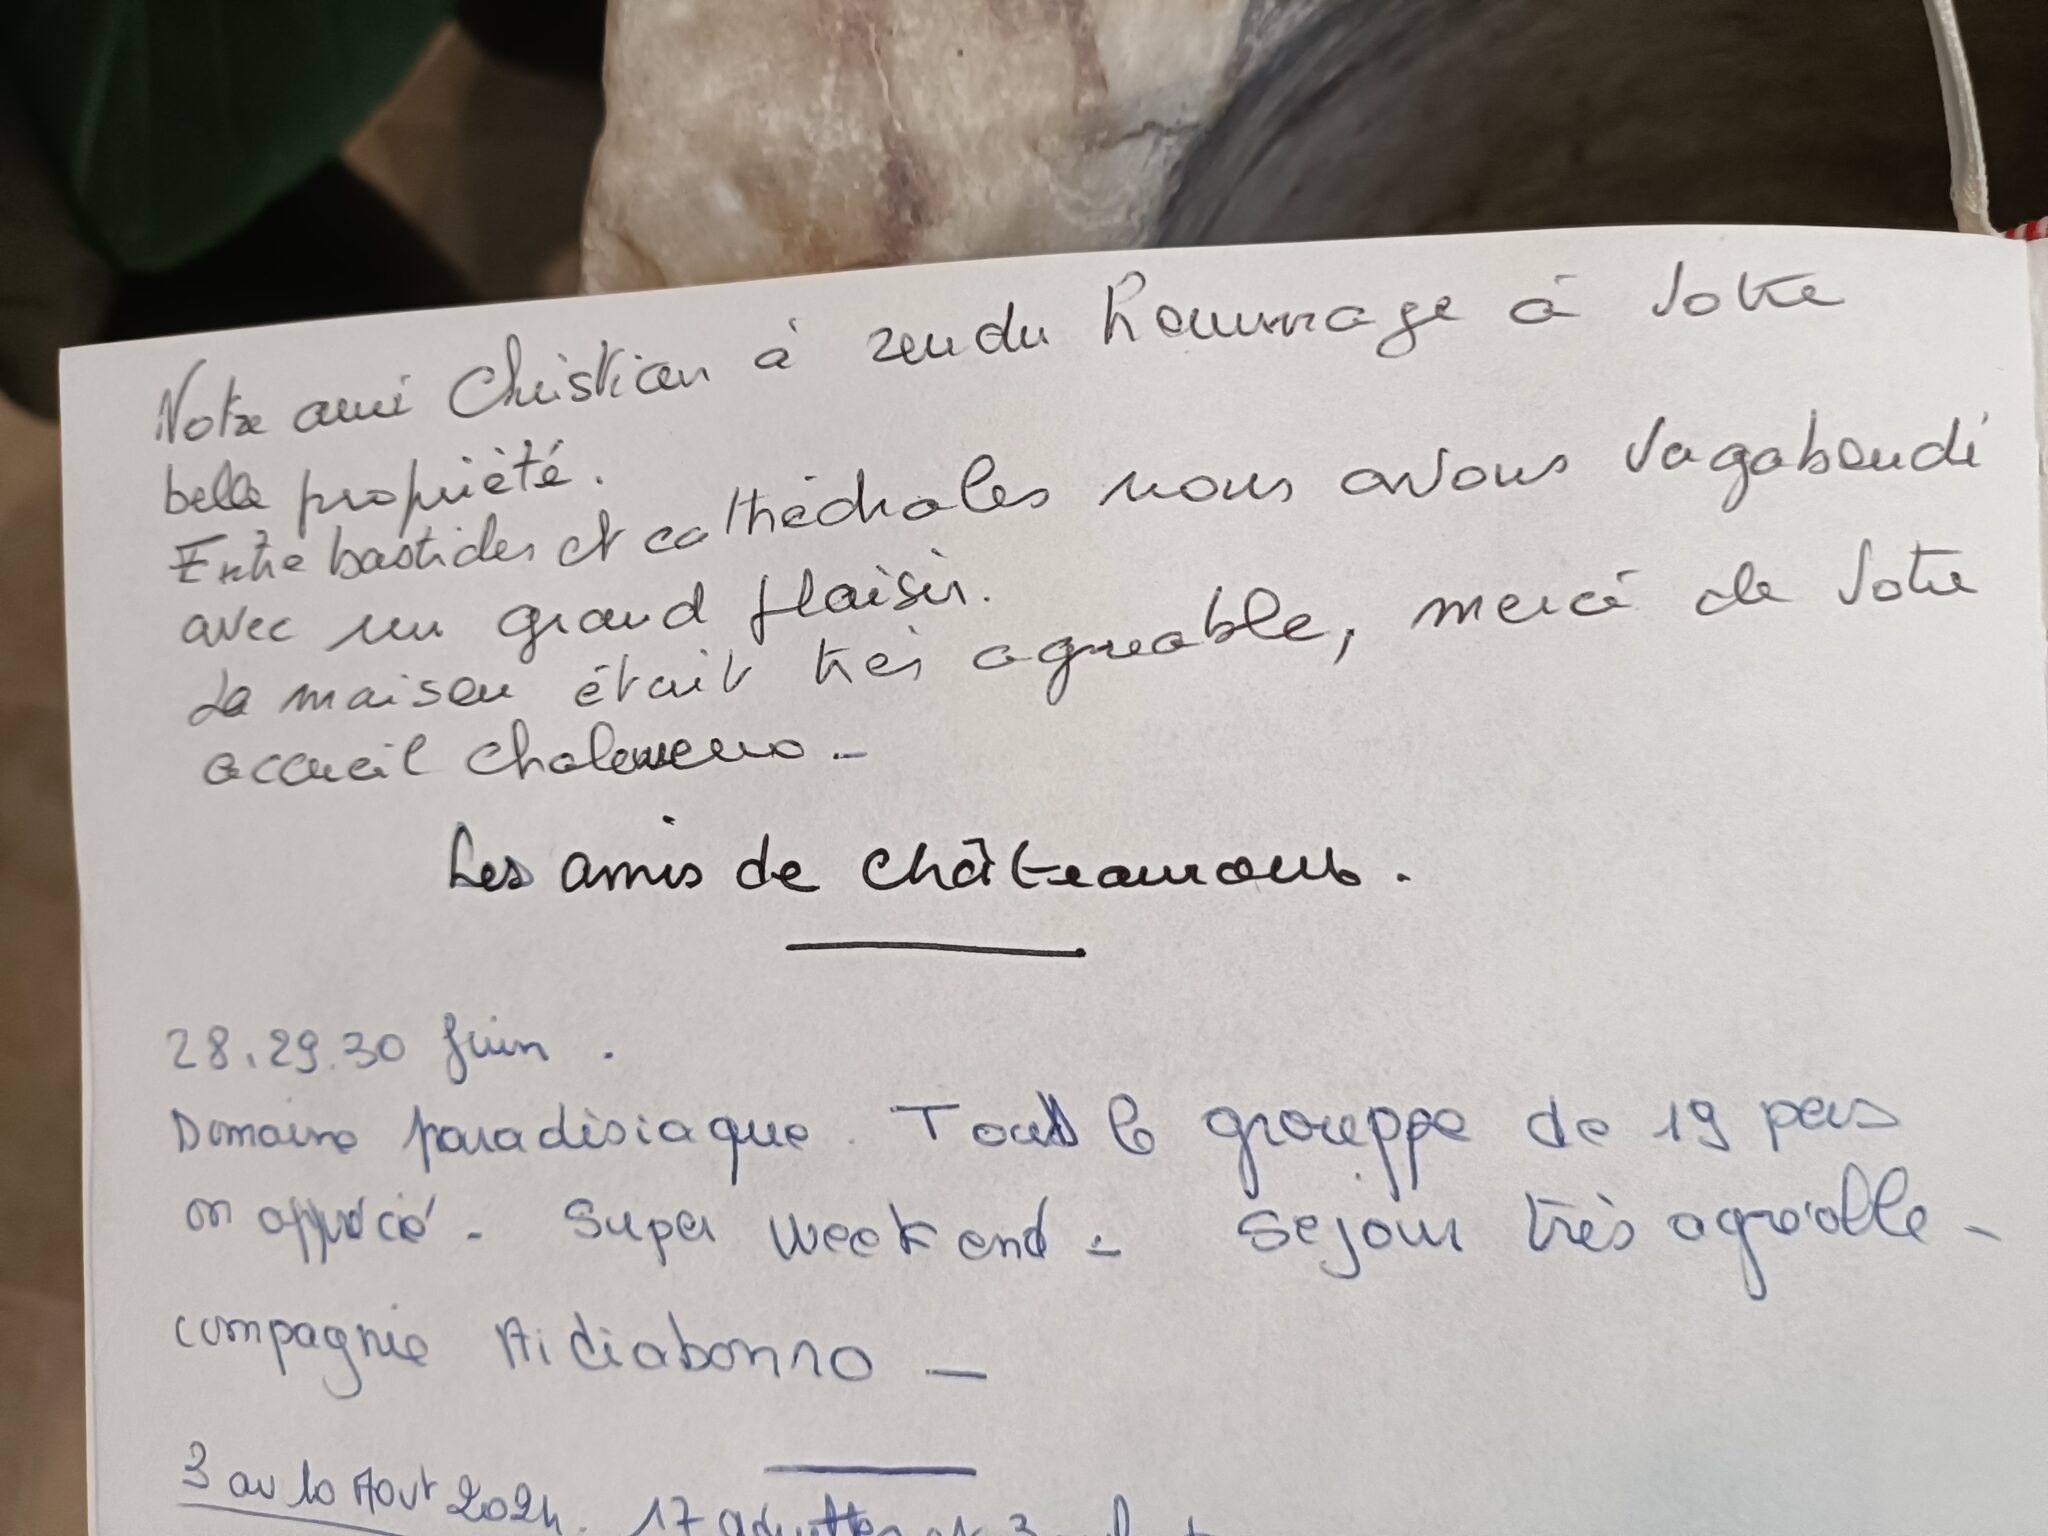 Notre ami Christian à rendu hommage à votre
belle propriété.
Entre bastides et cathédrales nous avons vagabondé
avec un grand plaisir.
La maison était très agréable, merci de votre
accueil chaleureux.
Les amis de Châteaumoub.
28.29.30 juin.
Domaine paradisiaque. Tout le grouppe de 19 pers
on apprécié. Super week end. Sejour très agréable.
compagnie Aidiabonno
3 au 10 Aout 2024. 17 adultes et 3